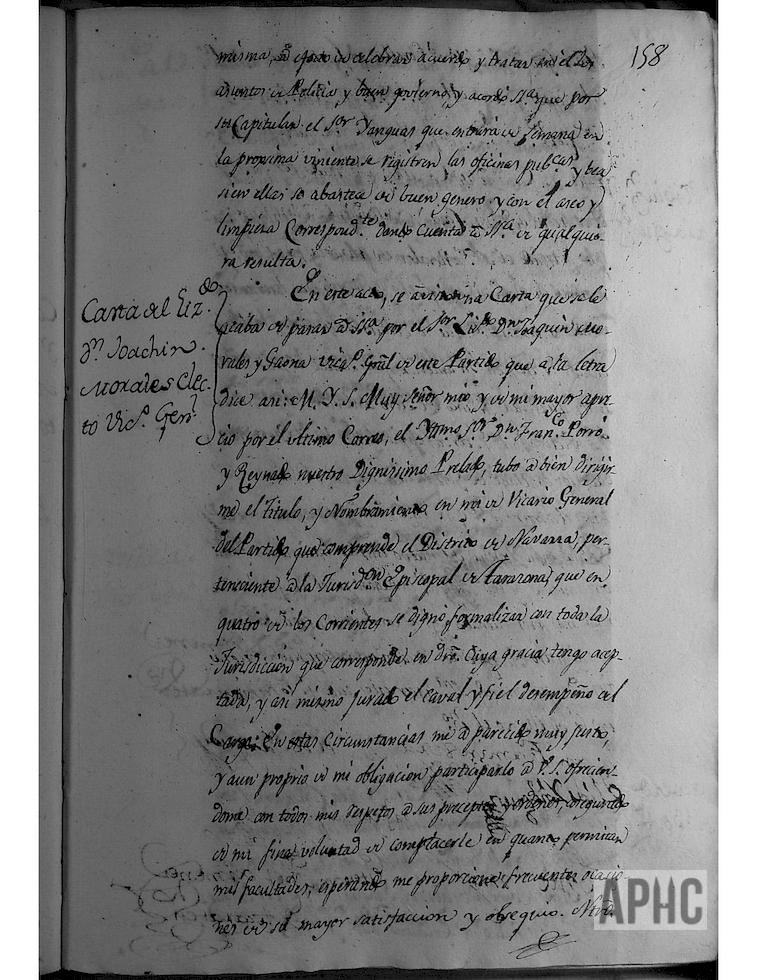 158
misma, a efecto de celebrar acuerdo y tratar en el los
asuntos de Policia y buen govierno, y acordó Ssa. que por
su Capitular el Sor. Yanguas que entrará de semana en
la proxima viniente se registren las oficinas pubcas. y vea
si en ellas se abastea de buen genero y con el aseo y
limpieza Correspondte. dando cuenta a Ssa. de qualquie-
ra resulta.
En este acto, se una Carta que se le
acaba de pasar a Ssa. por el Sor. Lizdo. Dn. Joaquin Mo-
rales y Gaona Vico. Grãl de este Partido que a la letra
dice asi: M. Y. S. Muy Señor mio y de mi mayor apre-
cio por el ultimo Correo, el Yltmo. Sor. Dn. Franco. Porró
y Reynado nuestro Dignissimo Prelado, tubo a bien dirigir-
me el Titulo, y Nombramiento en mi de Vicario General
del Partido que comprende el Distrito de Navarra, per-
teneciente a la Jurisdon. Episcopal de Tarazona, que en
quatro de los Corrientes se dignó formalizar con toda la
Jurisdiccion que corresponde en dro. Cuya gracia tengo acep-
tada, y asi mismo jurado el caval y fiel desempeño del
Cargo: En estas circunstancias me a parecido muy justo,
y aun proprio de mi obligacion participarlo a V.S. ofrecien-
dome con todos mis respetos a sus preceptos y ordenes, asegurado
de mi fina voluntad de complacerle en quanto permitan
mis facultades, esperando me proporcione frecuentes ocacio-
nes de su mayor satisfaccion y obsequio. Ntro.
Carta del Lizdo.
Dn. Joachin
Morales elec-
to Vico. Genl.
APHC